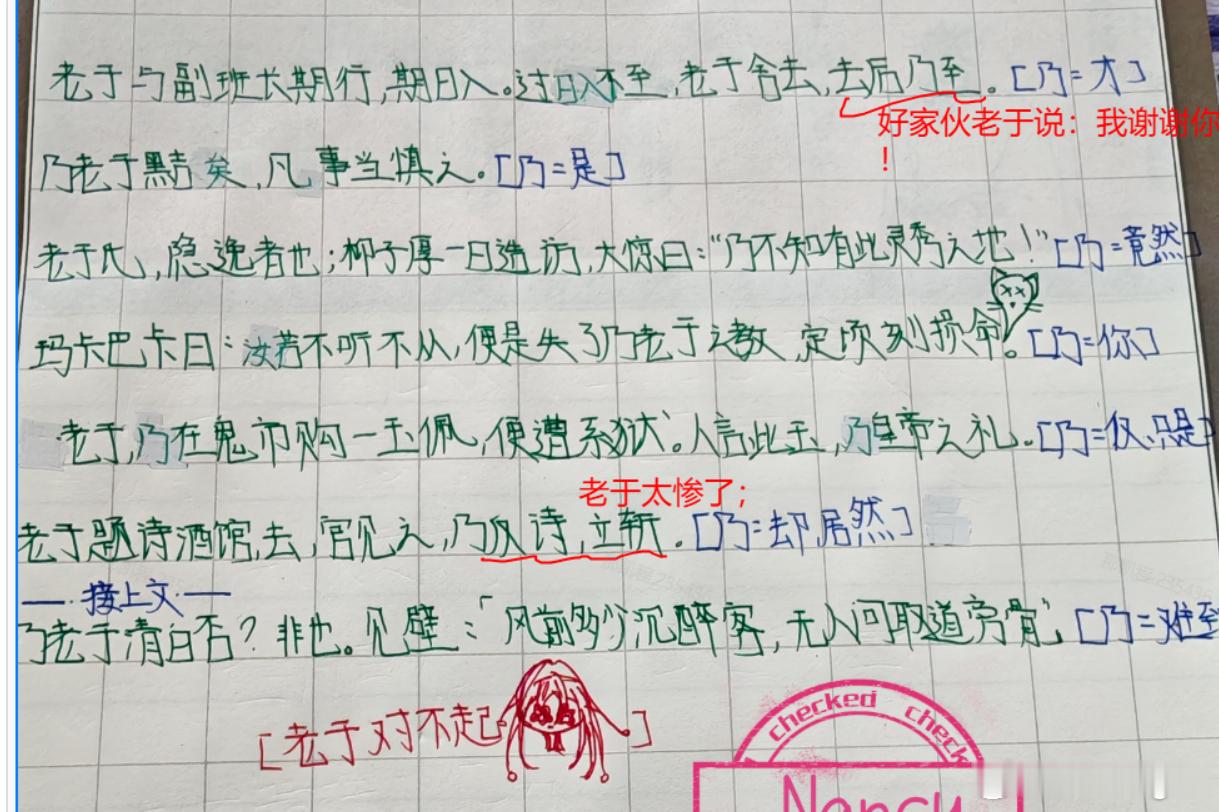 老于与副班长期行,期日入。过日入不至,老于舍去,去后乃至。[乃=才]
好家伙老于说：我谢谢你
！
乃老于黠矣,凡事当慎之。[乃=是]
老于氏,隐逸者也;柳子厚一日造访,大惊曰:“乃不知有此灵秀之地!”[乃=竟然]
玛卡巴卡曰:汝若不听不从,便是失了乃老于之教,定顷刻损命。[乃=你]
老于,乃在鬼市购一玉佩,便遭系狱。人言此玉,乃皇帝之礼.[乃=仅、只是]
老于太惨了；
老于题诗酒馆,去,官见之,乃反诗,立斩.[乃=却,居然]
—接上文—
乃老于清白否?非也。见壁:「风前多少沉醉客,无人问取道旁骨」[乃=难道
[老于对不起]
checked check
Nancy